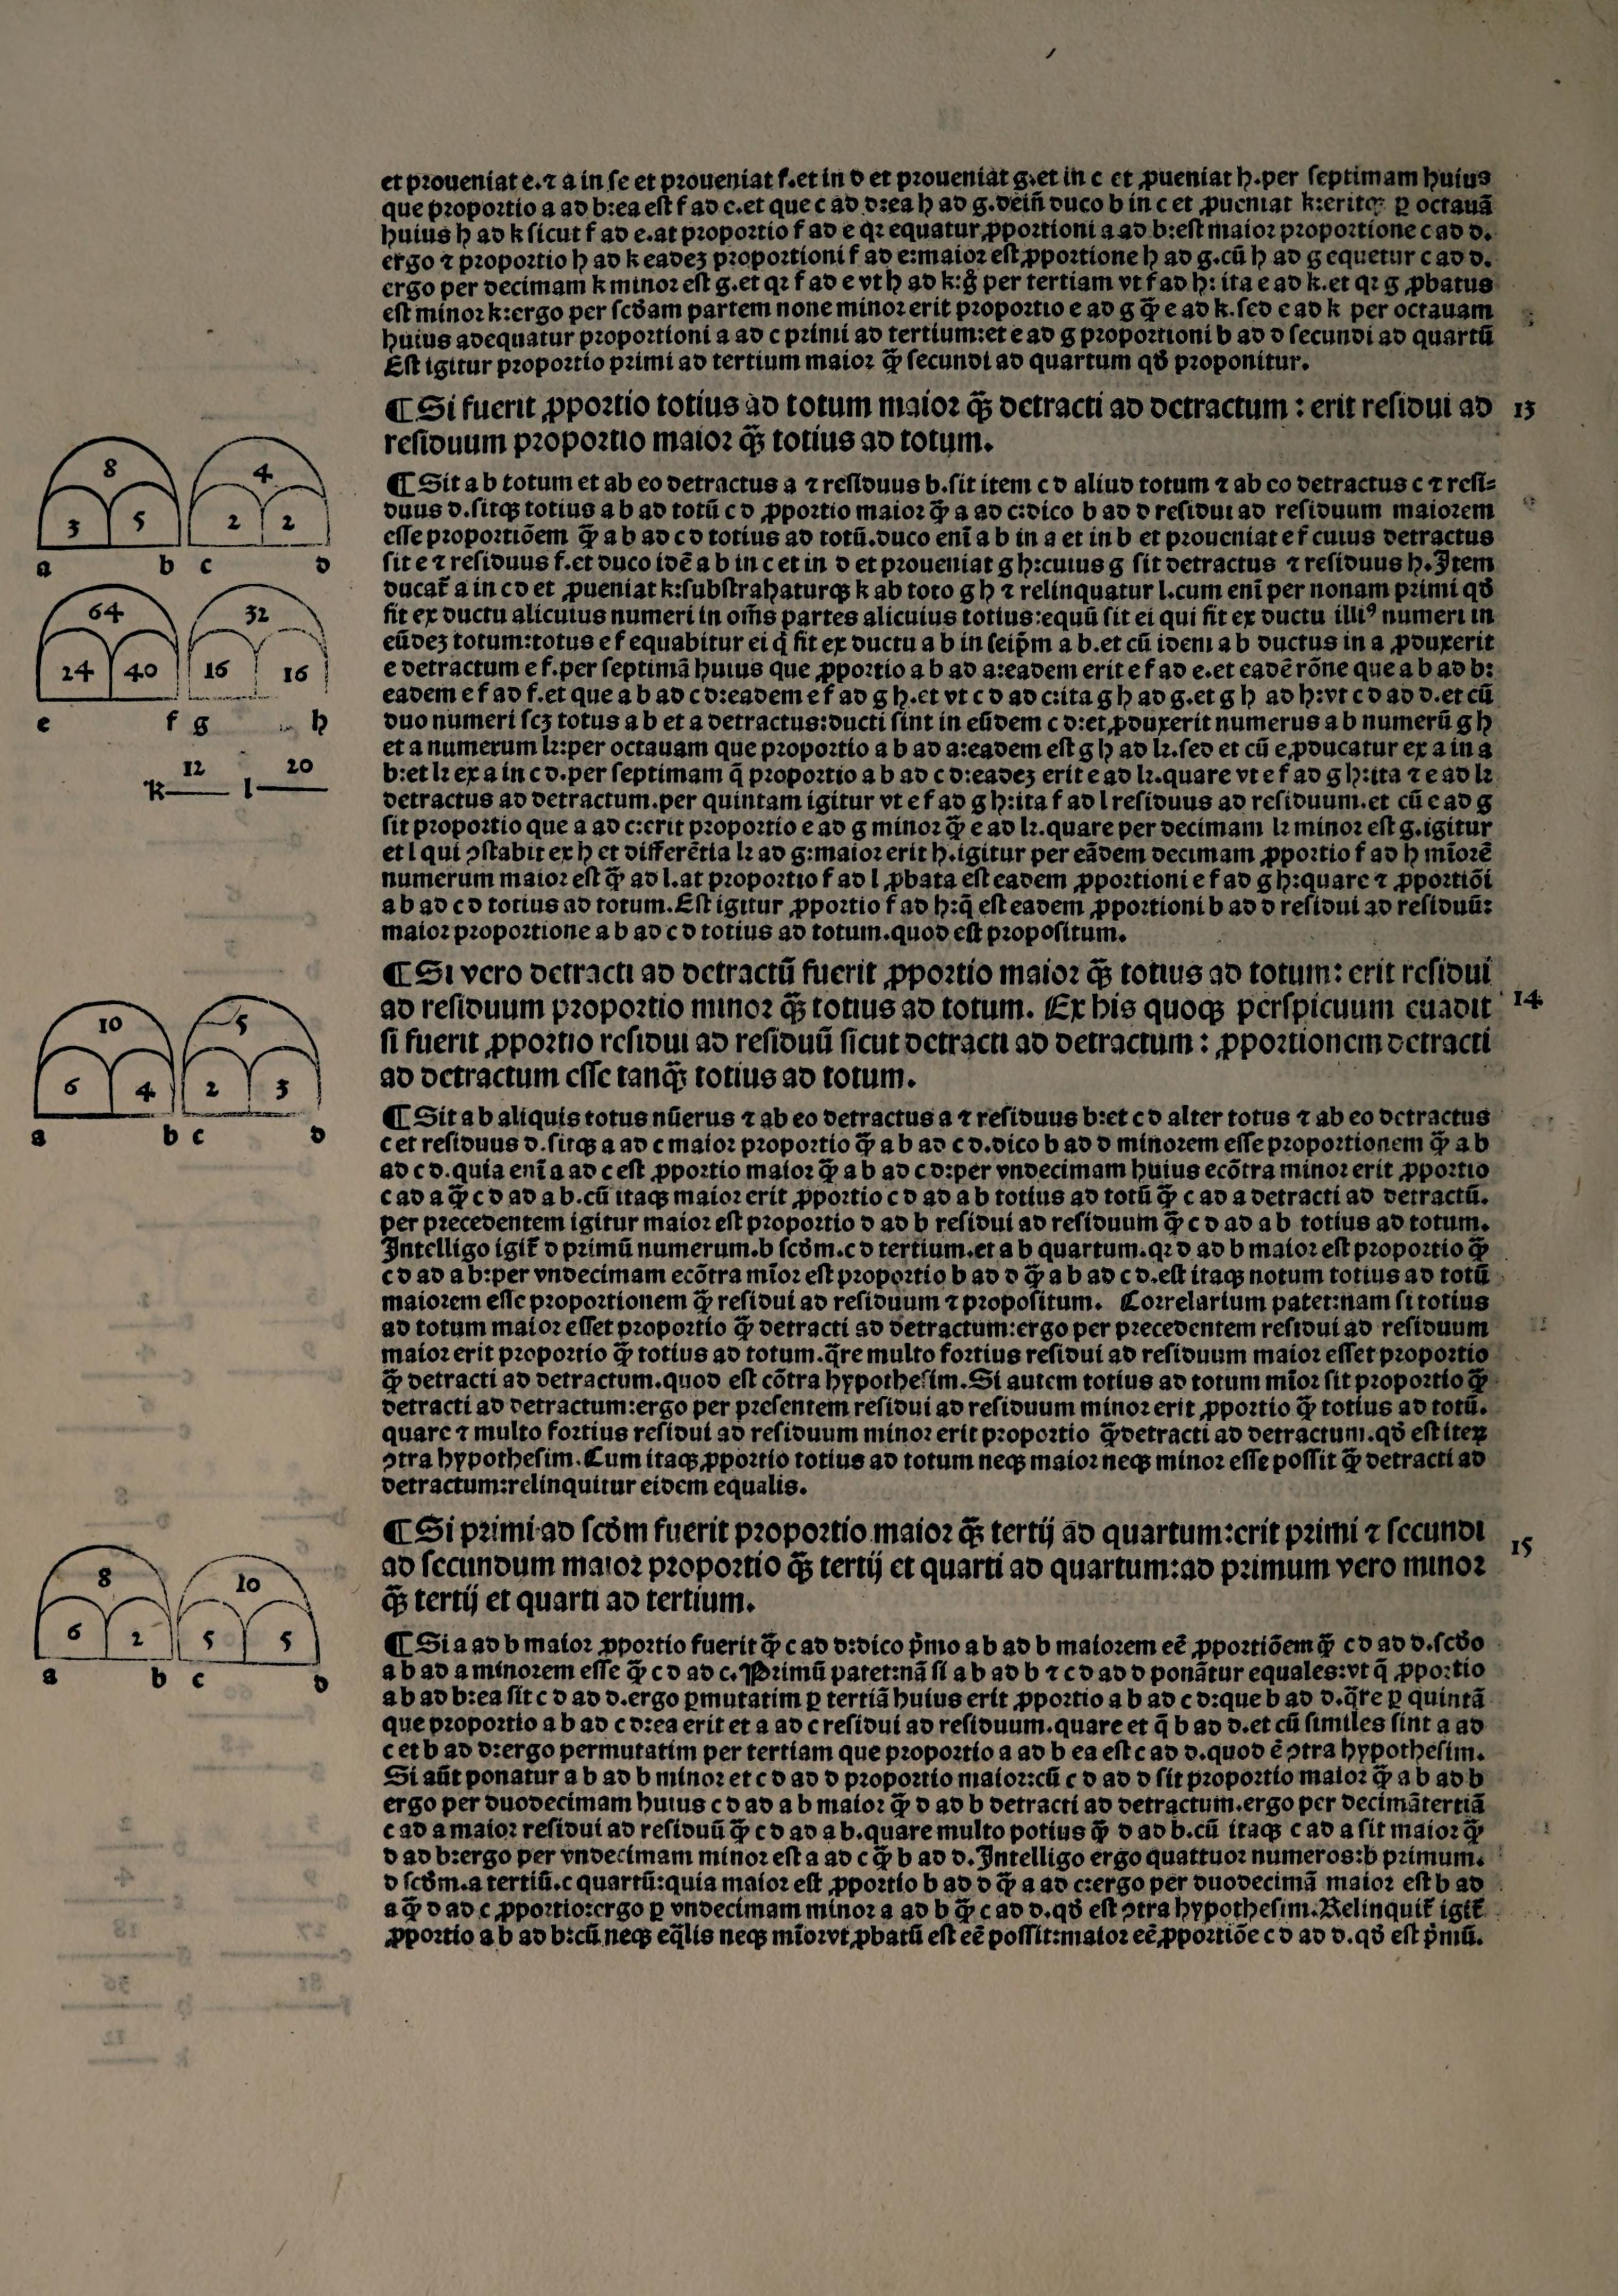 et proueniat e.⁊ a in se et proueniat f.et in d et proueniat g.et in c et ꝓueniat h.per septimam huius
que proportio a ad b:ea est f ad e.et que c ad d:ea h ad g.deiñ duco b in c et ꝓueniat k:eritqꝫ ꝑ octauā
huius h ad k sicut f ad e.at proportio f ad e qꝛ equatur ꝓportioni a ad b:est maior proportione c ad d.
ergo ⁊ proportio h ad k eadeꝫ proportioni f ad e:maior est ꝓportione h ad g.cū h ad g equetur c ad d.
ergo per decimam k minor est g.et qꝛ f ad e vt h ad k:g̊ per tertiam vt f ad h: ita e ad k.et qꝛ g ꝓbatus
est minor k:ergo per scđam partem none minor erit proportio e ad g q̃ e ad k.sed e ad k per octauam
huius adequatur proportioni a ad c primi ad tertium:et e ad g proportioni b ad d secundi ad quartū
Est igitur proportio primi ad tertium maior q̃ secundi ad quartum qđ proponitur.
¶ Si fuerit ꝓportio totius ad totum maior q̃ꝫ detracti ad detractum : erit residui ad 13
residuum proportio maior q̃ꝫ totius ad totum.
8 4
3 5 2 2
a b c d
¶ Sit a b totum et ab eo detractus a ⁊ residuus b.sit item c d aliud totum ⁊ ab eo detractus c ⁊ resi=
duus d.sitqꝫ totius a b ad totū c d ꝓportio maior q̃ a ad c:dico b ad d residui ad residuum maiorem
esse proportiōem q̃ a b ad c d totius ad totū.duco enī a b in a et in b et proueniat e f cuius detractus
sit e ⁊ residuus f.et duco idē a b in c et in d et proueniat g h:cuius g sit detractus ⁊ residuus h.Item
ducat̃ a in c d et ꝓueniat k:subtrahaturqꝫ k ab toto g h ⁊ relinquatur l.cum enī per nonam primi qđ
fit ex ductu alicuius numeri in om̃s partes alicuius totius:equū sit ei qui fit ex ductu illiꝰ numeri in
eūdeꝫ totum:totus e f equabitur ei q̇ fit ex ductu a b in seip̄m a b.et cū idem a b ductus in a ꝓduxerit
e detractum e f.per septimā huius que ꝓportio a b ad a:eadem erit e f ad e.et eadē rōne que a b ad b:
eadem e f ad f.et que a b ad c d:eadem e f ad g h.et vt c d ad c:ita g h ad g.et g h ad h:vt c d ad d.et cū
duo numeri scꝫ totus a b et a detractus:ducti sint in eūdem c d:et ꝓduxerit numerus a b numerū g h
et a numerum k:per octauam que proportio a b ad a:eadem est g h ad k.sed et cū e ꝓducatur ex a in a
b:et k ex a in c d.per septimam q̄ proportio a b ad c d:eadeꝫ erit e ad k.quare vt e f ad g h:ita ⁊ e ad k
detractus ad detractum.per quintam igitur vt e f ad g h:ita f ad l residuus ad residuum.et cū e ad g
sit proportio que a ad c:erit proportio e ad g minor q̃ e ad k.quare per decimam k minor est g.igitur
et l qui ꝯstabit ex h et differētia k ad g:maior erit h.igitur per eādem decimam ꝓportio f ad h mīorē
numerum maior est q̃ ad l.at proportio f ad l ꝓbata est eadem ꝓportioni e f ad g h:quare ⁊ ꝓportiōi
a b ad c d totius ad totum.Est igitur ꝓportio f ad h:q̄ est eadem ꝓportioni b ad d residui ad residuū:
maior proportione a b ad c d totius ad totum.quod est propositum.
64 32
24 40 16 16
e f g h
12 20
k l
¶ Si vero detracti ad detractū fuerit ꝓportio maior q̃ꝫ totius ad totum: erit residui
ad residuum proportio minor q̃ꝫ totius ad totum. Ex his quoqꝫ perspicuum euadit 14
si fuerit ꝓportio residui ad residuū sicut detracti ad detractum : ꝓportionem detracti
ad detractum esse tanq̃ꝫ totius ad totum.
10 5
6 4 2 3
a b c d
¶ Sit a b aliquis totus nūerus ⁊ ab eo detractus a ⁊ residuus b:et c d alter totus ⁊ ab eo detractus
c et residuus d.sitqꝫ a ad c maior proportio q̃ a b ad c d.dico b ad d minorem esse proportionem q̃ a b
ad c d.quia enī a ad c est ꝓportio maior q̃ a b ad c d:per vndecimam huius ecōtra minor erit ꝓportio
c ad a q̃ c d ad a b.cū itaqꝫ maior erit ꝓportio c d ad a b totius ad totū q̃ c ad a detracti ad detractū.
per precedentem igitur maior est proportio d ad b residui ad residuum q̃ c d ad a b totius ad totum.
Intelligo igit̃ d primū numerum.b scđm.c d tertium.et a b quartum.qꝛ d ad b maior est proportio q̃
c d ad a b:per vndecimam ecōtra mīor est proportio b ad d q̃ a b ad c d.est itaqꝫ notum totius ad totū
maiorem esse proportionem q̃ residui ad residuum ⁊ propositum. Correlarium patet:nam si totius
ad totum maior esset proportio q̃ detracti ad detractum:ergo per precedentem residui ad residuum
maior erit proportio q̃ totius ad totum.q̄re multo fortius residui ad residuum maior esset proportio
q̃ detracti ad detractum.quod est cōtra hypothesim.Si autem totius ad totum mīor sit proportio q̃
detracti ad detractum:ergo per presentem residui ad residuum minor erit ꝓportio q̃ totius ad totū.
quare ⁊ multo fortius residui ad residuum minor erit proportio q̃ detracti ad detractum.qđ est iteꝝ
ꝯtra hypothesim.Cum itaqꝫ ꝓportio totius ad totum neqꝫ maior neqꝫ minor esse possit q̃ detracti ad
detractum:relinquitur eidem equalis.
¶ Si primi ad scđm fuerit proportio maior q̃ꝫ tertij ad quartum:erit primi ⁊ secundi
ad secundum maior proportio q̃ꝫ tertij et quarti ad quartum:ad primum vero minor 15
q̃ꝫ tertij et quarti ad tertium.
8 10
6 2 5 5
a b c d
¶ Si a ad b maior ꝓportio fuerit q̃ c ad d:dico p̄mo a b ad b maiorem eē ꝓportiōem q̃ c d ad d.scđo
a b ad a minorem esse q̃ c d ad c.Primū patet:nā si a b ad b ⁊ c d ad d ponātur equales:vt q̄ ꝓportio
a b ad b:ea sit c d ad d.ergo ꝑmutatim ꝑ tertiā huius erit ꝓportio a b ad c d:que b ad d.q̄re ꝑ quintā
que proportio a b ad c d:ea erit et a ad c residui ad residuum.quare et q̄ b ad d.et cū similes sint a ad
c et b ad d:ergo permutatim per tertiam que proportio a ad b ea est c ad d.quod ē ꝯtra hypothesim.
Si aūt ponatur a b ad b minor et c d ad d proportio maior:cū c d ad d sit proportio maior q̃ a b ad b
ergo per duodecimam huius c d ad a b maior q̃ d ad b detracti ad detractum.ergo per decimātertiā
c ad a maior residui ad residuū q̃ c d ad a b.quare multo potius q̃ d ad b.cū itaqꝫ c ad a sit maior q̃
d ad b:ergo per vndecimam minor est a ad c q̃ b ad d.Intelligo ergo quattuor numeros:b primum.
d scđm.a tertiū.c quartū:quia maior est ꝓportio b ad d q̃ a ad c:ergo per duodecimā maior est b ad
a q̃ d ad c ꝓportio:ergo ꝑ vndecimam minor a ad b q̃ c ad d.qđ est ꝯtra hypothesim.Relinquit̃ igit̃
ꝓportio a b ad b:cū neqꝫ eq̄lis neqꝫ mīor vt ꝓbatū est eē possit:maior eē ꝓportiōe c d ad d.qđ est p̄mū.